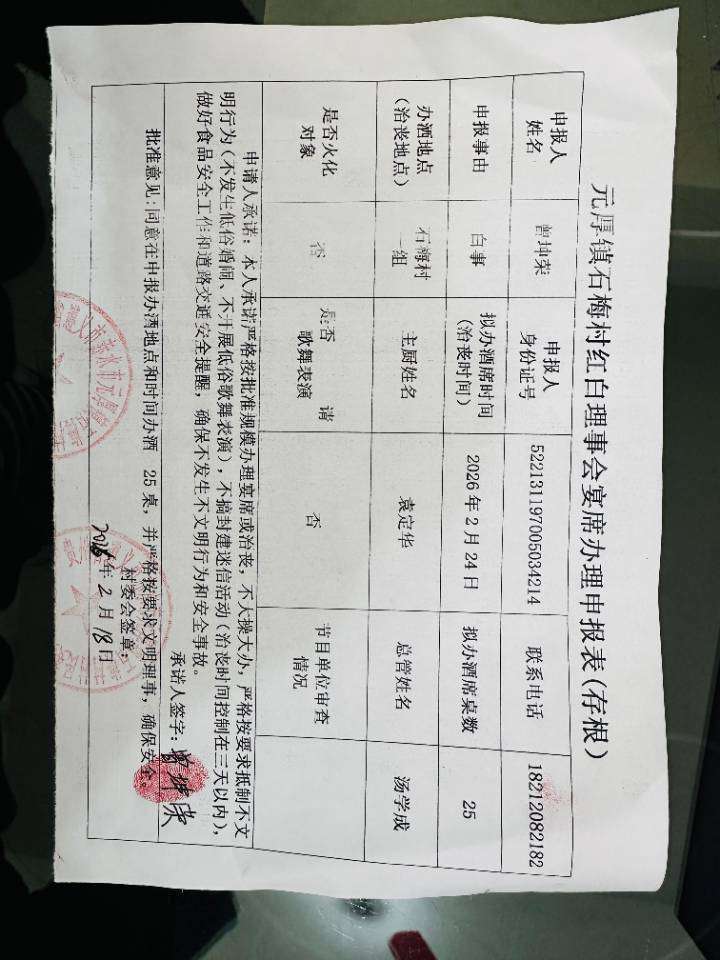 元厚镇石梅村红白理事会宴席办理申报表(存根)
申报人姓名 曾坤荣 申报人身份证号 522131197005034214 联系电话 18212082182
申报事由 白事 拟办酒席时间(治丧时间) 2026年2月24日 拟办酒席桌数 25
办酒地点(治丧地点) 石梅村一组 主厨姓名 袁定华 总管姓名 汤学成
是否火化对象 否 是否请歌舞表演 否 节目单位审查情况
申请人承诺:本人承诺严格按批准规模办理宴席或治丧,不大操大办,严格按要求抵制不文
明行为(不发生低俗婚闹、不开展低俗歌舞表演),不搞封建迷信活动(治丧时间控制在三天以内),
做好食品安全工作和道路交通安全提醒,确保不发生不文明行为和安全事故。
承诺人签字:曾坤荣
批准意见:同意在申报办酒地点和时间办酒 25 桌,并严格按要求文明理事,确保安全。
村委会签章:
2026年2月18日